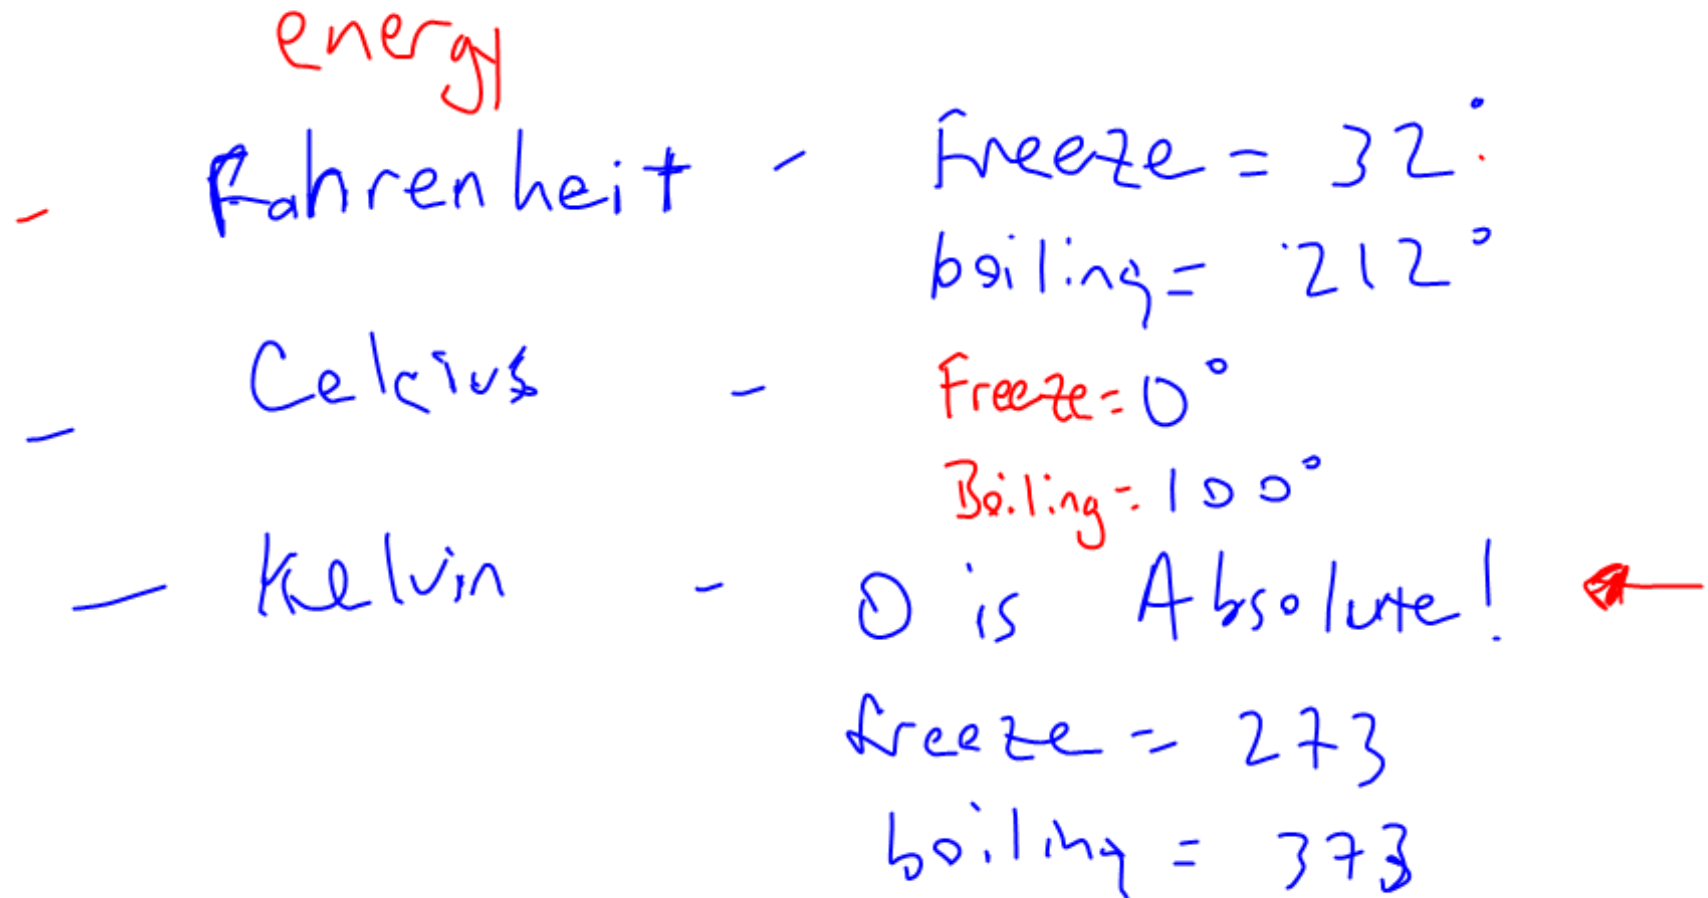 energy
- Fahrenheit - Freeze = 32°
boiling = 212°
- Celcius - Freeze = 0°
Boiling = 100°
- Kelvin - 0 is Absolute!
freeze = 273
boiling = 373